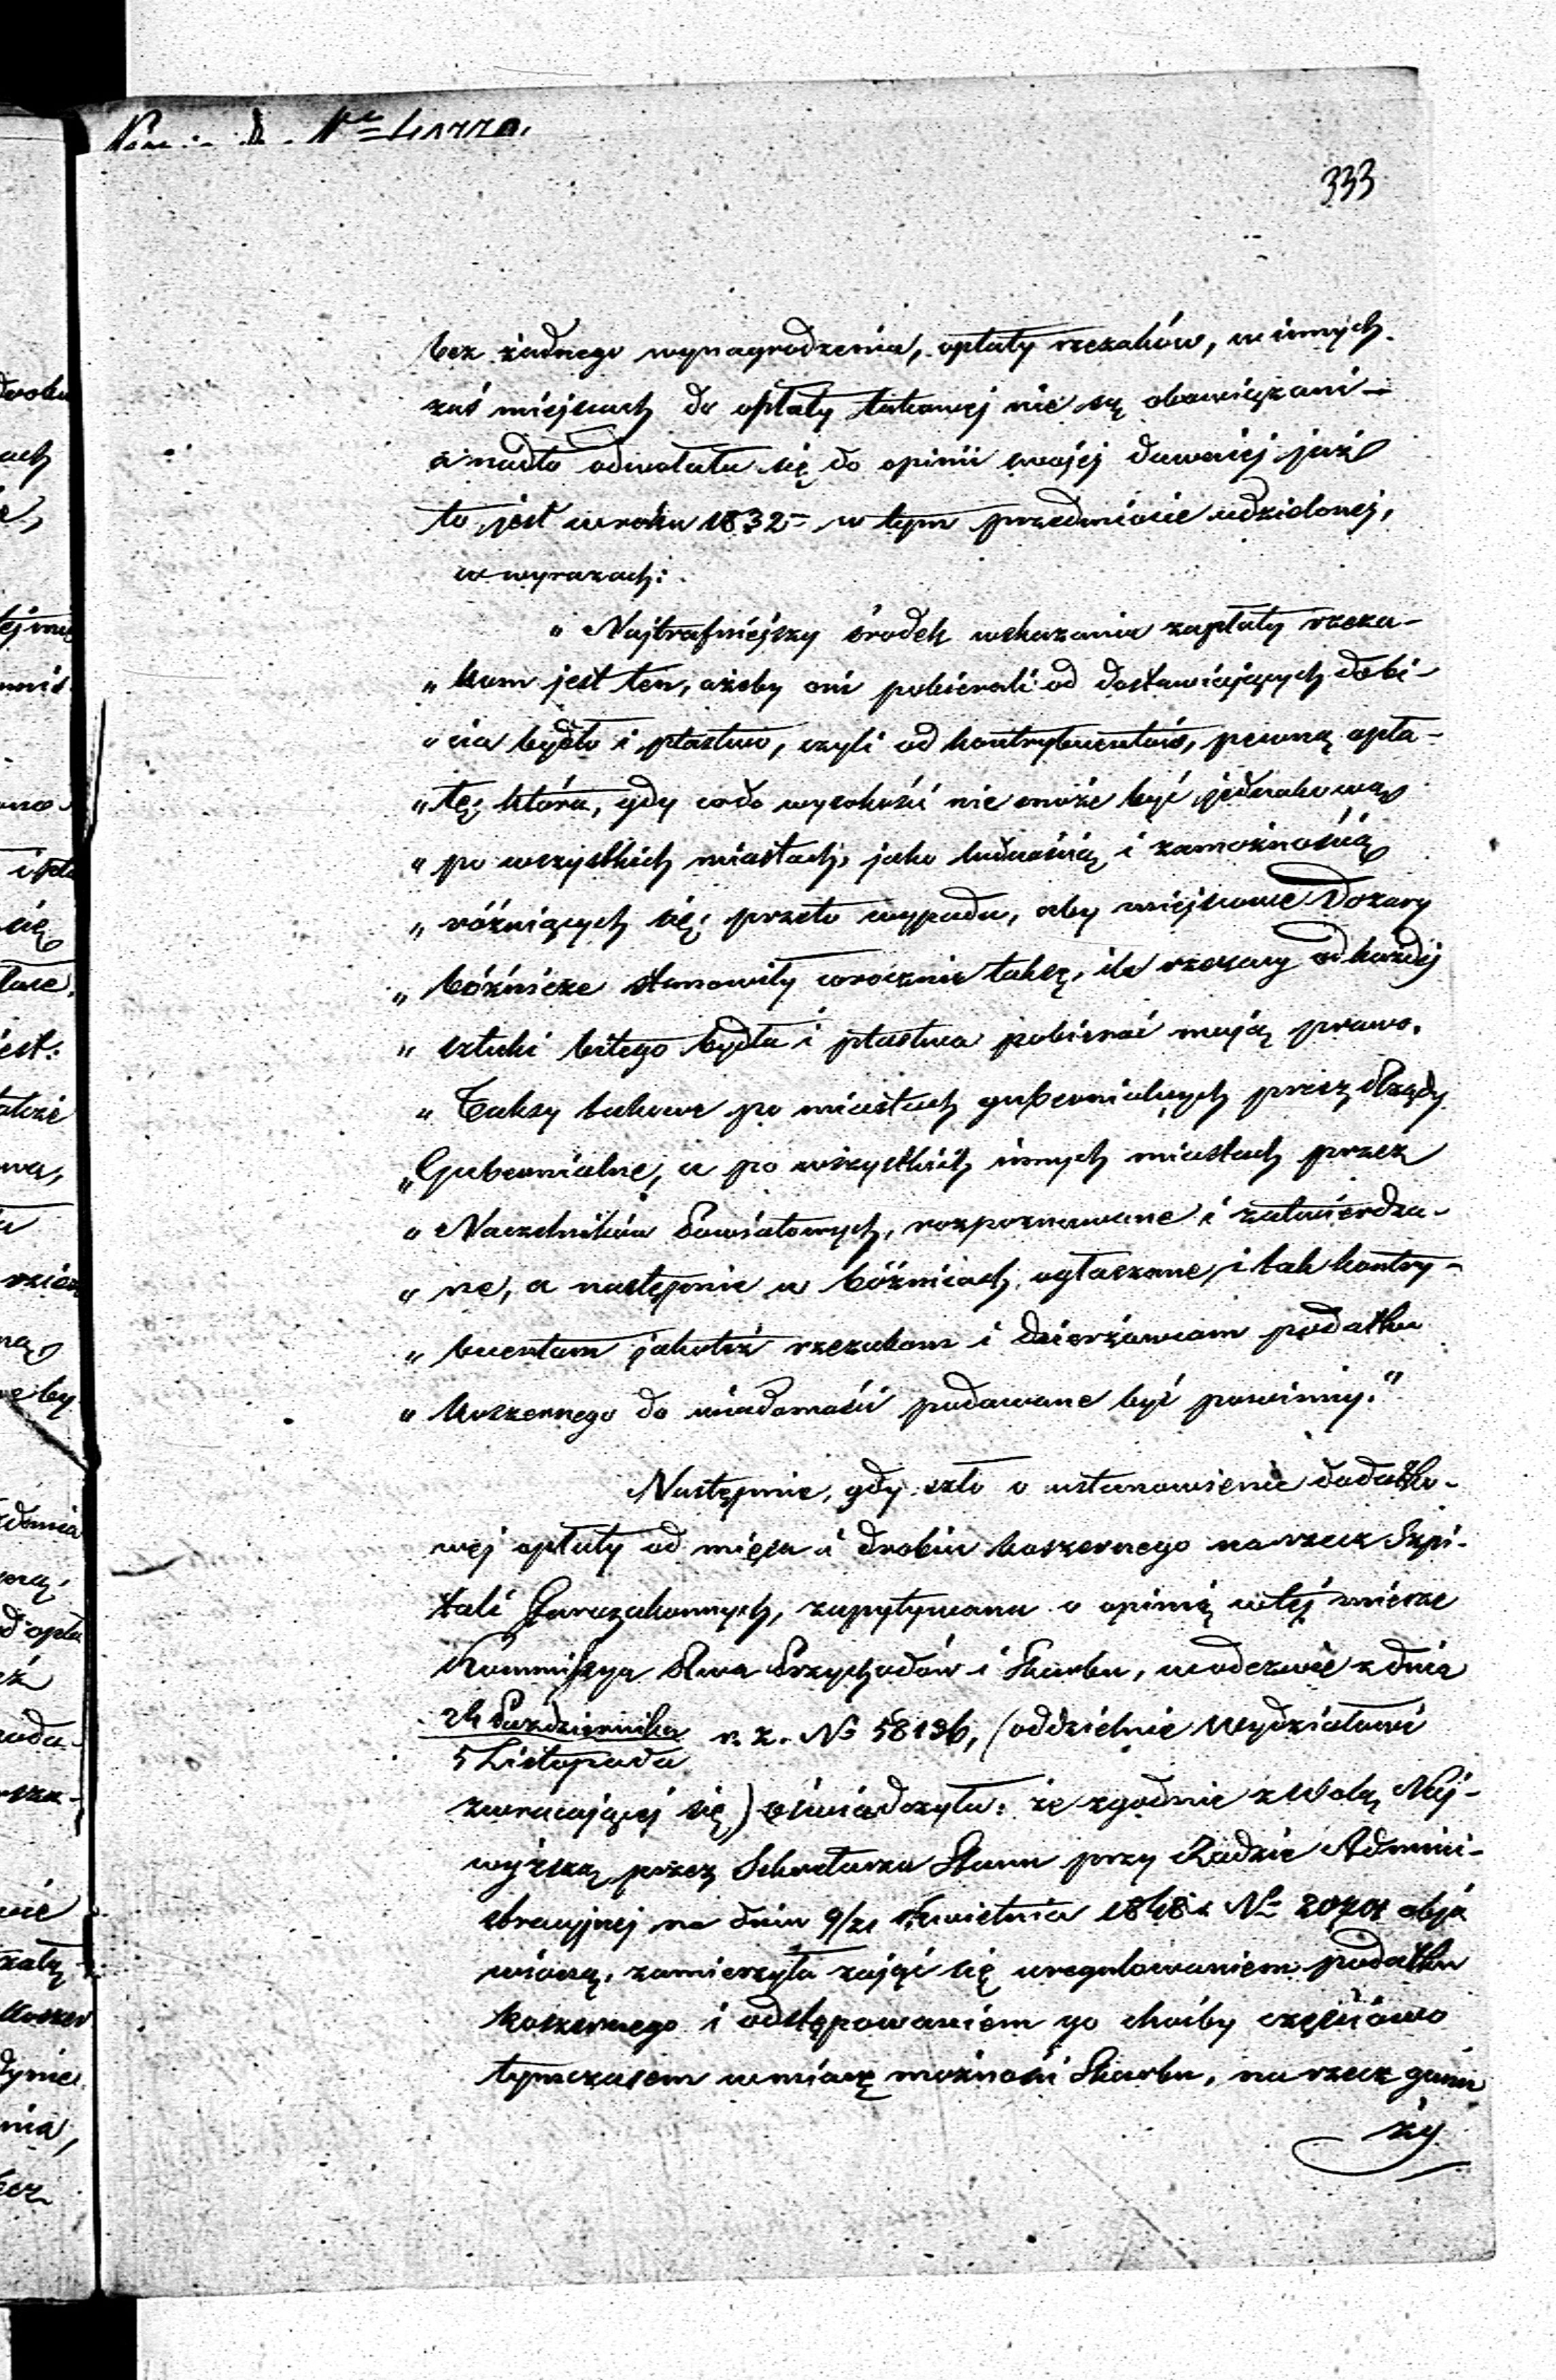 333
bez żadnego wynagrodzenia, opłaty rzezaków, w innych
zaś miejscach do opłaty takowej nie są obowiązani –
a nadto odwołała się do opinii swojej dawniej już
to jest w roku 1832 – w tym przedmiocie udzielonej,
w wyrazach:
„ Najtrafniejszy środek wskazania zapłaty rzeza-
„ kom jest ten, ażeby oni pobierali od dostawiających do bi-
„ cia bydło i ptastwo, czyli od kontrybuentów, pewną opła-
„ tę, która, gdy co do wysokości nie może być jednakową
„ po wszystkich miastach, jako ludnością i zamożnością
„ różniących się; przeto wypada, aby miejscowe Dozory
„ bóżnicze stanowiły corocznie taksę, ile rzezacy od każdej
„ sztuki bitego bydła i ptastwa pobierać mają prawo.
„ Taksy takowe po miastach gubernialnych przez Rządy
„ Gubernialne, a po wszystkich innych miastach przez
„ Naczelników Powiatowych, rozpoznawane i zatwierdza-
„ ne, a następnie w bóżnicach ogłaszane, i tak kontry-
„ buentom jakoteż rzezakom i dzierżawcom podatku
„ koszernego do wiadomości podawane być powinny."
Następnie, gdy szło o ustanowienie dodatko-
wej opłaty od mięsa i drobiu koszernego na rzecz Szpi-
tali Starozakonnych, zapytywana o opinią w tej mierze
Kommissya Rwa Przychodów i Skarbu, w odezwie z dnia
24 Października
5 Listopada
r. z. № 58136, (oddzielnie Wydziałowi
zwracającej się) oświadczyła: że zgodnie z Wolą Naj-
wyższą, przez Sekretarza Stanu przy Radzie Admini-
stracyjnej na dniu 9/21 Kwietnia 1848 r. № obja
wioną, zamierzyła zająć się uregulowaniem podatku
koszernego i odstępowaniem go choćby częściowo
tymczasem w miarę możności Skarbu, na rzecz gmin
ży